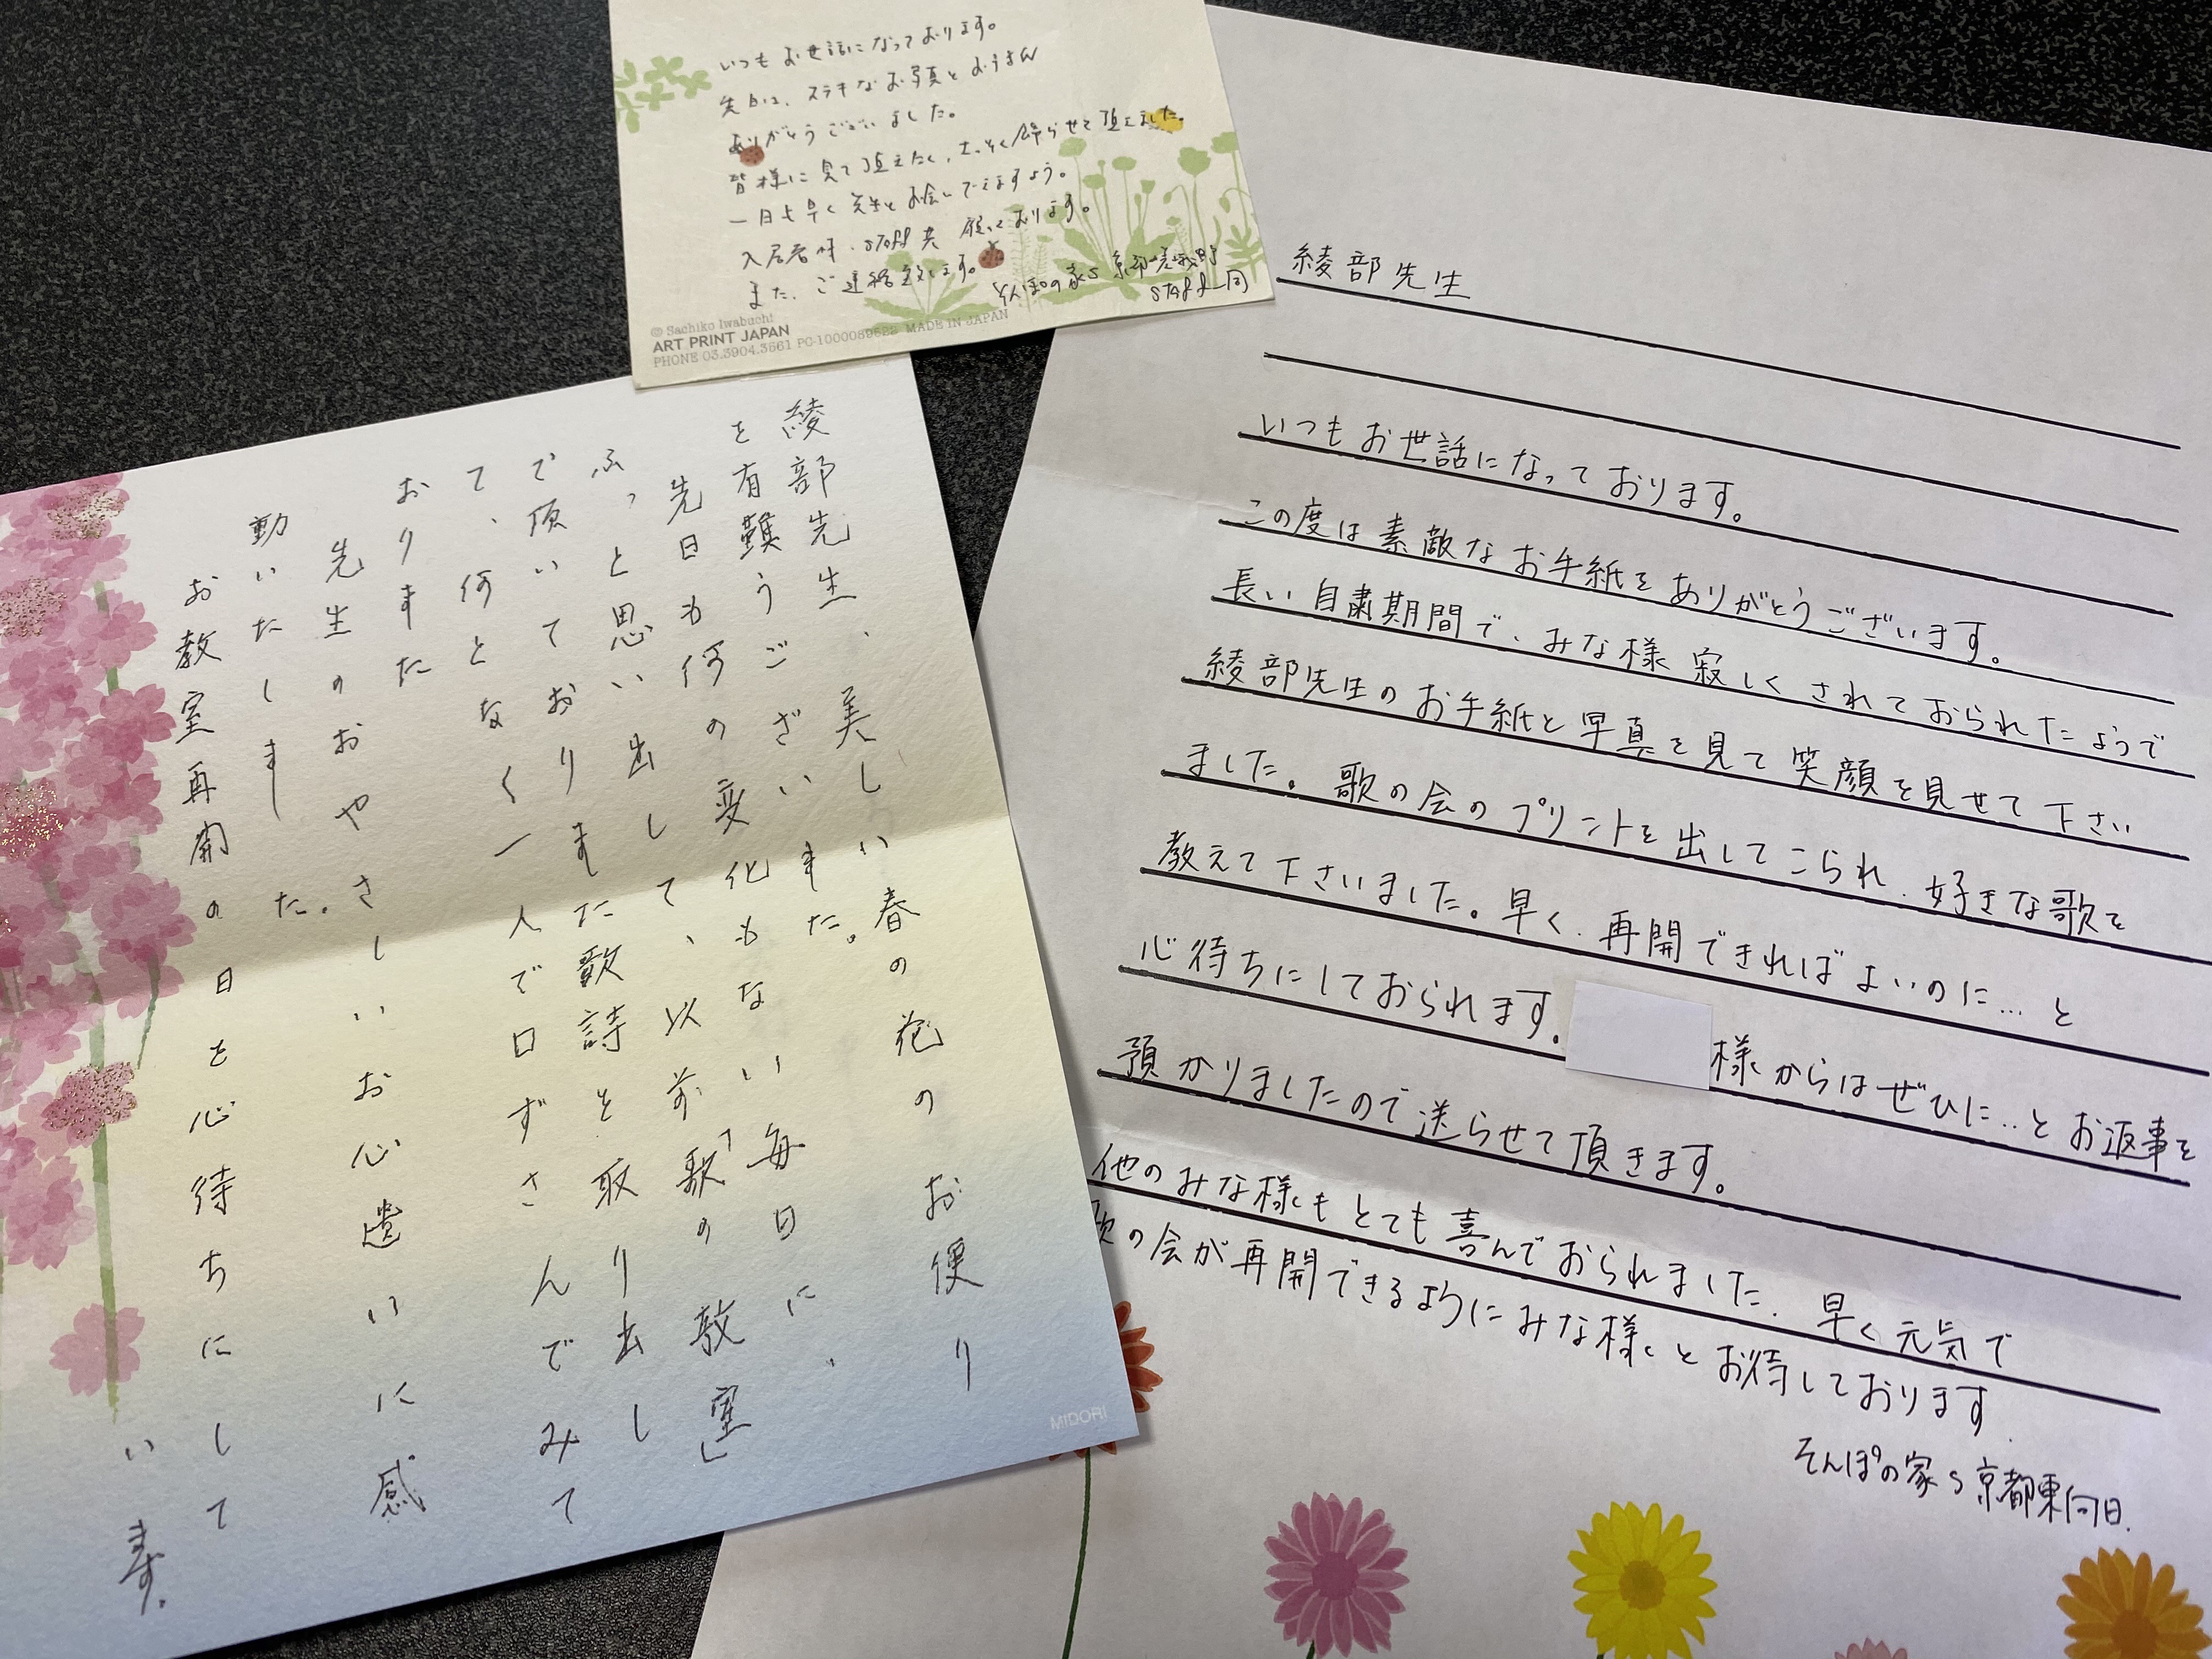 いつもお世話になっております。
先日は、ステキなお写真と
ありがとうございました。
皆様に見て頂えたく、さっそく飾らせて頂きました。
一日も早く先生とお会いできますよう。
入居者様・staff共 願っております。
また、ご連絡致します。
そんぽの家S 京都嵯峨野
staff一同
© Sachiko Iwabuchi
ART PRINT JAPAN
PHONE 03.3904.3561 PC-1000089622 MADE IN JAPAN
綾部先生
いつもお世話になっております。
この度は素敵なお手紙をありがとうございます。
長い自粛期間で、みな様 寂しくされておられたようで
綾部先生のお手紙と写真を見て笑顔を見せて下さい
ました。歌の会のプリントを出してこられ、好きな歌を
教えて下さいました。早く、再開できればよいのに…と
心待ちにしておられます。
様からはぜひに…とお返事を
預かりましたので送らせて頂きます。
他のみな様もとても喜んでおられました。早く元気で
歌の会が再開できるようにみな様とお待しております
そんぽの家S京都東向日.
綾部先生、美しい春の花のお便り
を有難うございました。
先日も何の変化もない毎日に、
ふっと思い出して、以前「歌の教室」
で頂いておりました歌詩を取り出し
て、何となく一人で口ずさんでみて
おりました
先生のおやさしいお心遣いに感
動いたしました。
お教室再開の日を心待ちにして
います。
MIDORI